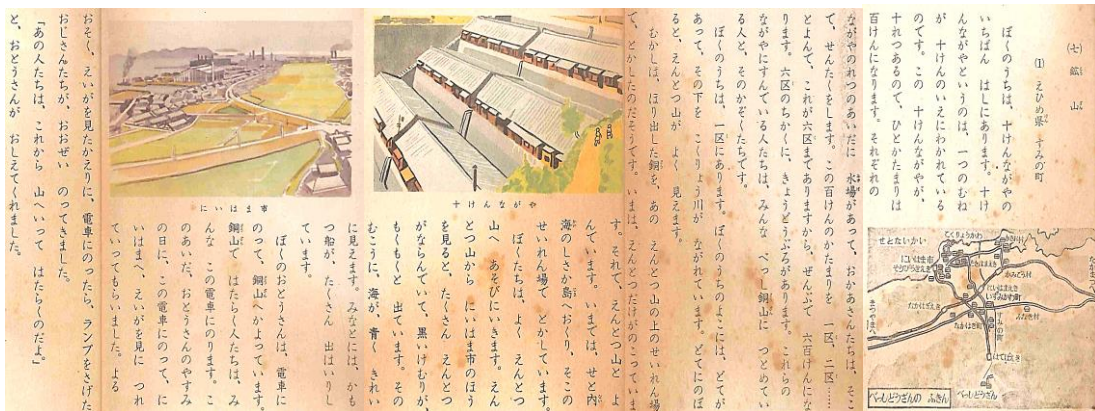 (七) 鉱山
(1) えひめ県 すみの町
ぼくのうちは、十けんながやの
いちばん はしにあります。十け
んながやというのは、一つのむね
が 十けんのいえにわかれている
のです。この 十けんながやが、
十れつあるので、ひとかたまりは
百けんになります。それぞれの
ながやのれつのあいだに 水場があって、おかあさんたちは、そこ
で、せんたくをします。この百けんのかたまりを 一区、二区……
とよんで、これが六区までありますから、ぜんぶで 六百けんにな
ります。六区のちかくに、きょうどうぶろがあります。これらの
ながやにすんでいる人たちは、みんな べっし銅山に つとめてい
る人と、そのかぞくたちです。
ぼくのうちは、一区にあります。ぼくのうちのよこには、どてが
あって、その下を こくりょう川が ながれています。どてにのぼ
ると、えんとつ山が よく 見えます。
むかしは、ほり出した銅を、あの えんとつ山の上のせいれん場
で、とかしたのだそうです。いまは、えんとつだけがのこっていま
す。それで、えんとつ山と よ
んでいます。いまでは、せと内
海のしさか島へおくり、そこの
せいれん場で とかしています。
ぼくたちは、よく えんとつ
山へ あそびにいきます。えん
とつ山から にいはま市のほう
を見ると、たくさん えんとつ
がならんでいて、黒いけむりが、
もくもくと 出ています。その
むこうに、海が、青く きれい
に見えます。みなとには、かも
つ船が、たくさん 出はいりし
ています。
ぼくのおとうさんは、電車に
のって、銅山へかよっています。
銅山で はたらく人たちは、み
んな この電車にのります。こ
のあいだ、おとうさんのやすみ
の日に、この電車にのって、に
いはまへ、えいがを見に つれ
ていってもらいました。よる
おそく、えいがを見たかえりに、電車にのったら、ランプをさげた
おじさんたちが、おおぜい のってきました。
「あの人たちは、これから 山へいって はたらくのだよ。」
と、おとうさんが おしえてくれました。
十けんながや
にいはま市
せとないかい
こくりょうかわ
にいはま市
すみの町
べっしどうざん
べっしどうざんの ふきん